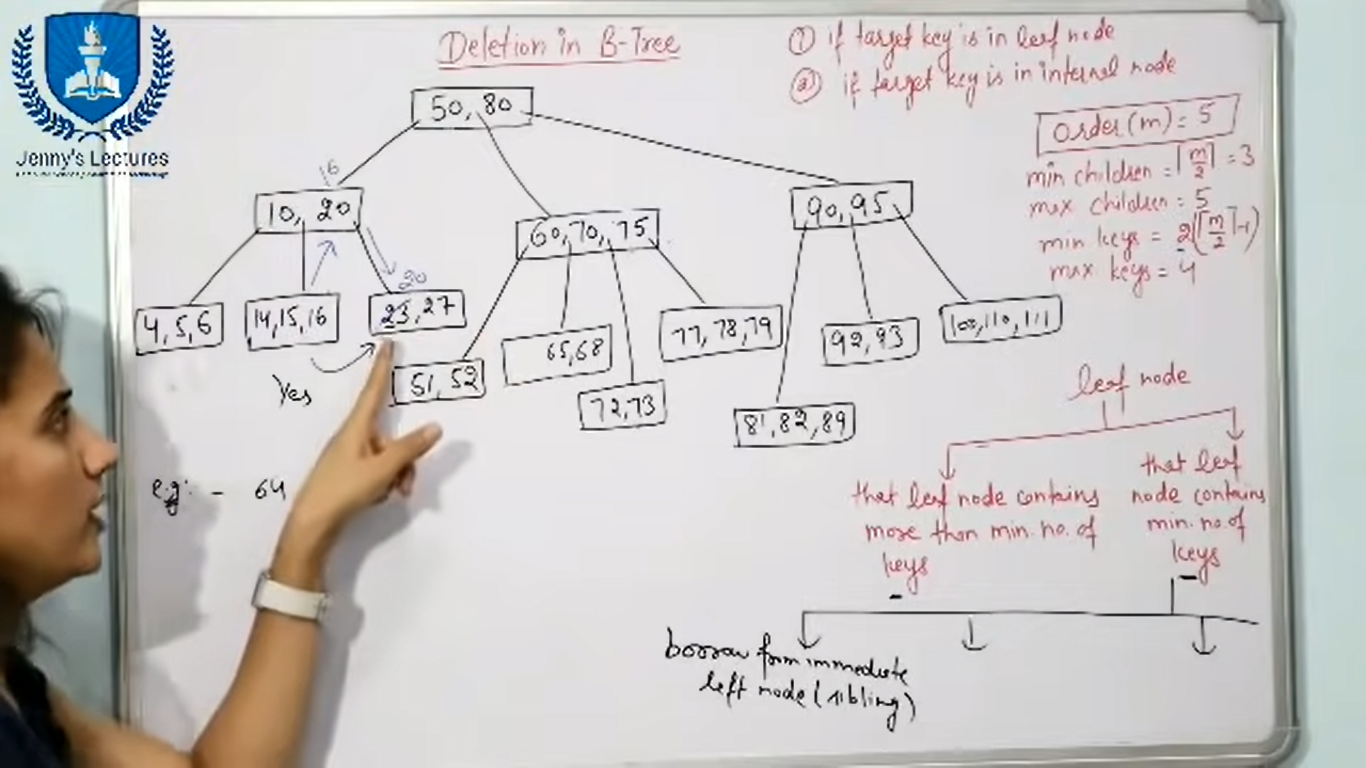 Jenny's Lectures
Deletion in B-Tree
① if target key is in leaf node
② if target key is in internal node
Order(m) = 5
min children = ⌈m/2⌉ = 3
max children = 5
min keys = 2(⌈m/2⌉-1)
max keys = 4
50, 80
16
10, 20
60, 70, 75
90, 95
20
4, 5, 6
14, 15, 16
23, 27
51, 52
65, 68
72, 73
77, 78, 79
81, 82, 89
92, 93
100, 110, 111
Yes
e.g:- 64
leaf node
that leaf node contains
more than min. no. of
keys
that leaf
node contains
min. no. of
keys
borrow from immediate
left node (sibling)